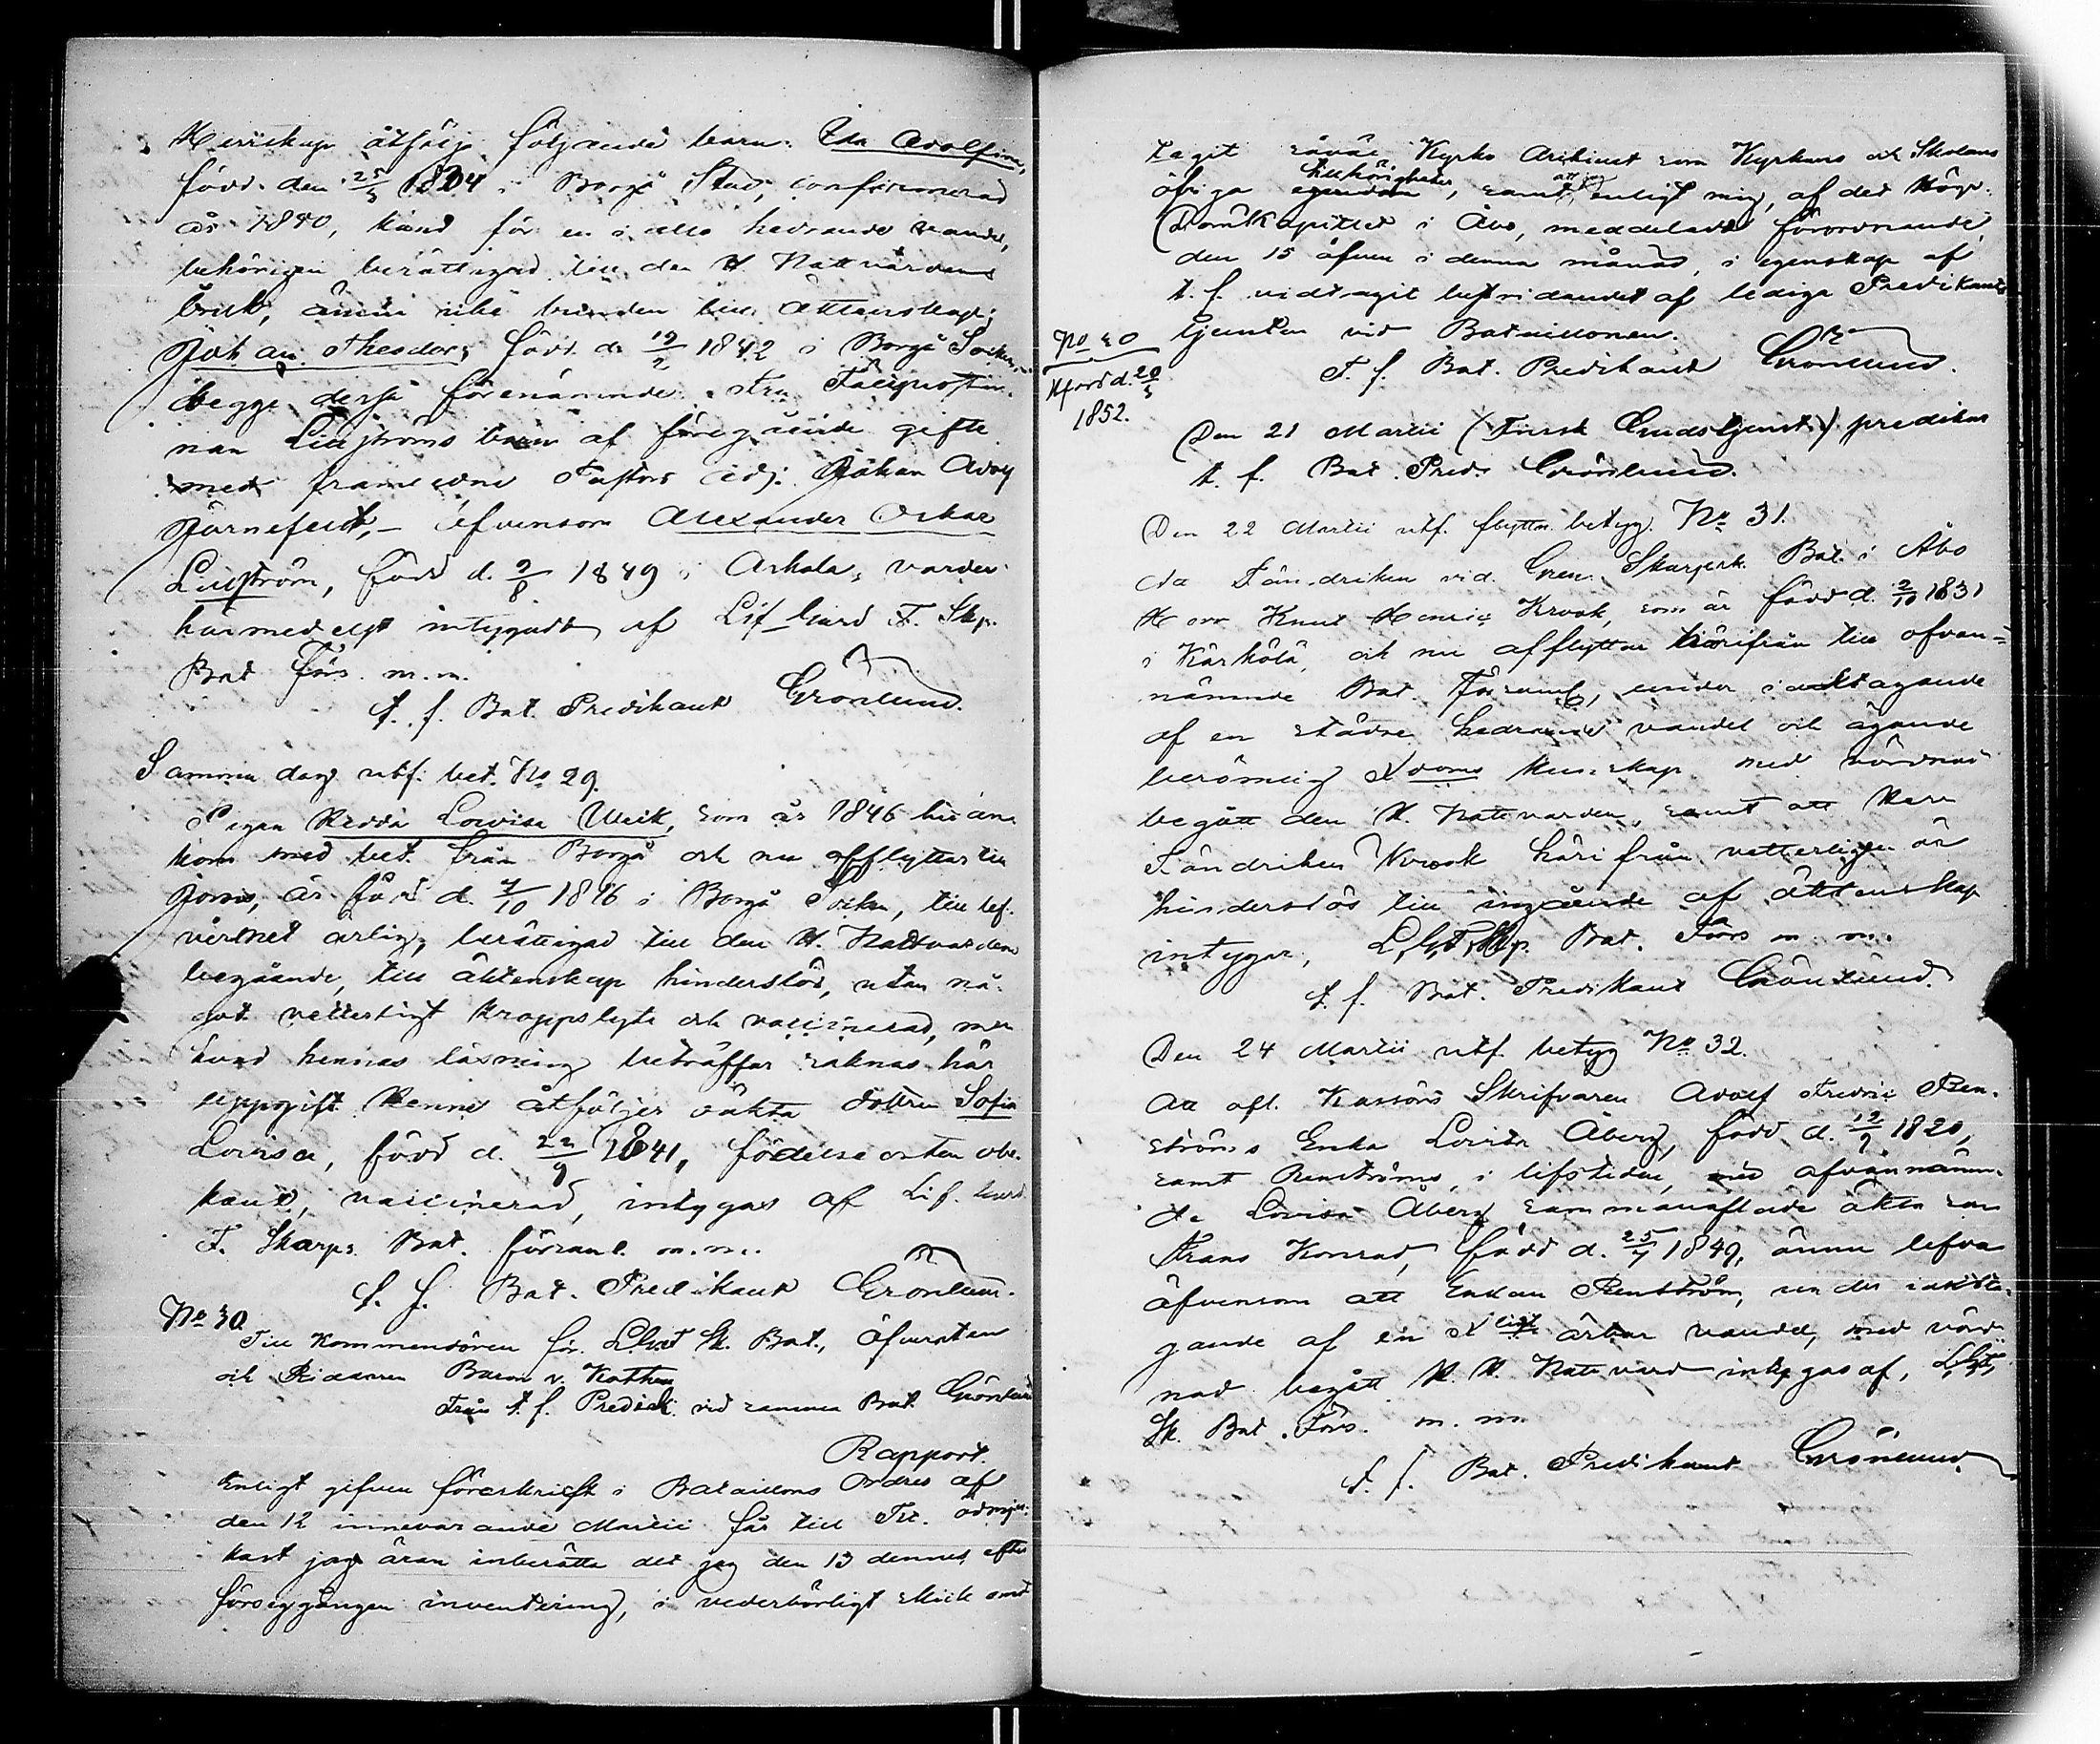 Herrskap åtfölja följande barn: Ida Adolfina,
född den 25/3 1834 i Borgå Stad, confirmerad
år 1840, känd för en i allo hedrande vandel,
behörigen berättigad till den H. Nattvardens
bruk, ännu icke bunden till äktenskap;
Johan Theodor, född d. 19/2 1842 i Borgå Socken,
begge dessa förenämnde Fru
nan Lidströms barn af föregående gifte
med framlidne Pastors adj. Johan Adolf
Järnefeldt, – äfvensom Alexander Oskar
Lidström, född d. 9/8 1849 i Askola, varder
härmedelst intygadt af Lif Gard F. Skp.
Bat Förs. m. m.
t. f. Bat. Predikant Grönlund.
Samma dag utf. bet. No 29.
Pigan Hedda Lovisa Weik, som år 1846 hit an
kom med bet. från Borgå och nu afflyttar till
, är född d. 4/10 1816 i Borgå Socken, till lef
vernet ärlig, berättigad till den H. Nattvardens
begående, till äktenskap hinderslös, utan nå
got vetterligt kroppslyte och vaccinerad, men
hvad hennes läsning beträffar saknas här
uppgift. Henne åtföljer oäkta dottren Sofia
Lovisa, född d. 22/9 1841, födelseorten obe
kant, vaccinerad, intygas af Lif Gard
F. Skarps. Bat. församl. m.m.
t. f. Bat. Predikant Grönlund.
No 30.
Till Kommendören för L. Gd. F. Sk. Bat., Öfversten
och Riddaren Baron v. Kothen
Från t. f. Predik. vid samma Bat. Grönlund
Rapport.
Enligt gifven föreskrift i Bataillons Ordres af
den 12 innevarande Martii får till Tit. ödmju
kast jag äran inberätta det jag den 13 dennes efter
försiggången inventering, i vederbörligt skick emot
tagit såväl Kyrko Archivet som Kyrkans och Skolans
öfriga egendom tillhörigheter, samt att jag enligt mig, af det Högv.
Domkapitlet i Åbo, meddeladt förordnande
den 15 äfven i denna månad, i egenskap af
t. f. vidtagit bestridandet af lediga Predikants
tjensten vid Bataillonen.
No 30
Hfors d. 20/3
1852.
T. f. Bat. Predikant Grönlund.
Den 21 Martii (Finsk Gudstjenst) predikar
t. f. Bat. Pred. Grönlund.
Den 22 Martii utf. flyttn. betyg. No 31.
Att Fändriken vid Gren. Skarpsk. Bat. i Åbo
Herr Knut Henric Krook, som är född d. 2/10 1831
i Kärkölä, och nu afflyttar härifrån till ofvan=
nämnde Bat. Församl., under iakttagande
af en städse hedrande vandel och ägande
berömlig Xdoms kunskap med vördnad
begått den H. Nattvarden, samt att Herr
Fändriken Krook härifrån vetterligen är
hinderslös till ingående af äktenskap
intygar, L. G. F. Skp. Bat. Förs m. m.
t. f. Bat. Predikant Grönlund.
Den 24 Martii utf. betyg No 32.
Att afl. Kassörs Skrifvaren Adolf Fredric Ren
ströms Enka Lovisa Åberg, född d. 12/9 1820,
samt Renströms, i lifstiden, med ofvannämn
de Lovisa Åberg sammanaflade äkta son
Frans Konrad, född d. 25/7 1849, ännu lefva
äfvensom att Enkan Renström, under iaktta
gande af en Xligt ärbar vandel, med vörd
nad begått H. H. Nattvard intygas af, L. G. F.
Sk. Bat. Förs. m. m.
t. f. Bat. Predikant Grönlund.